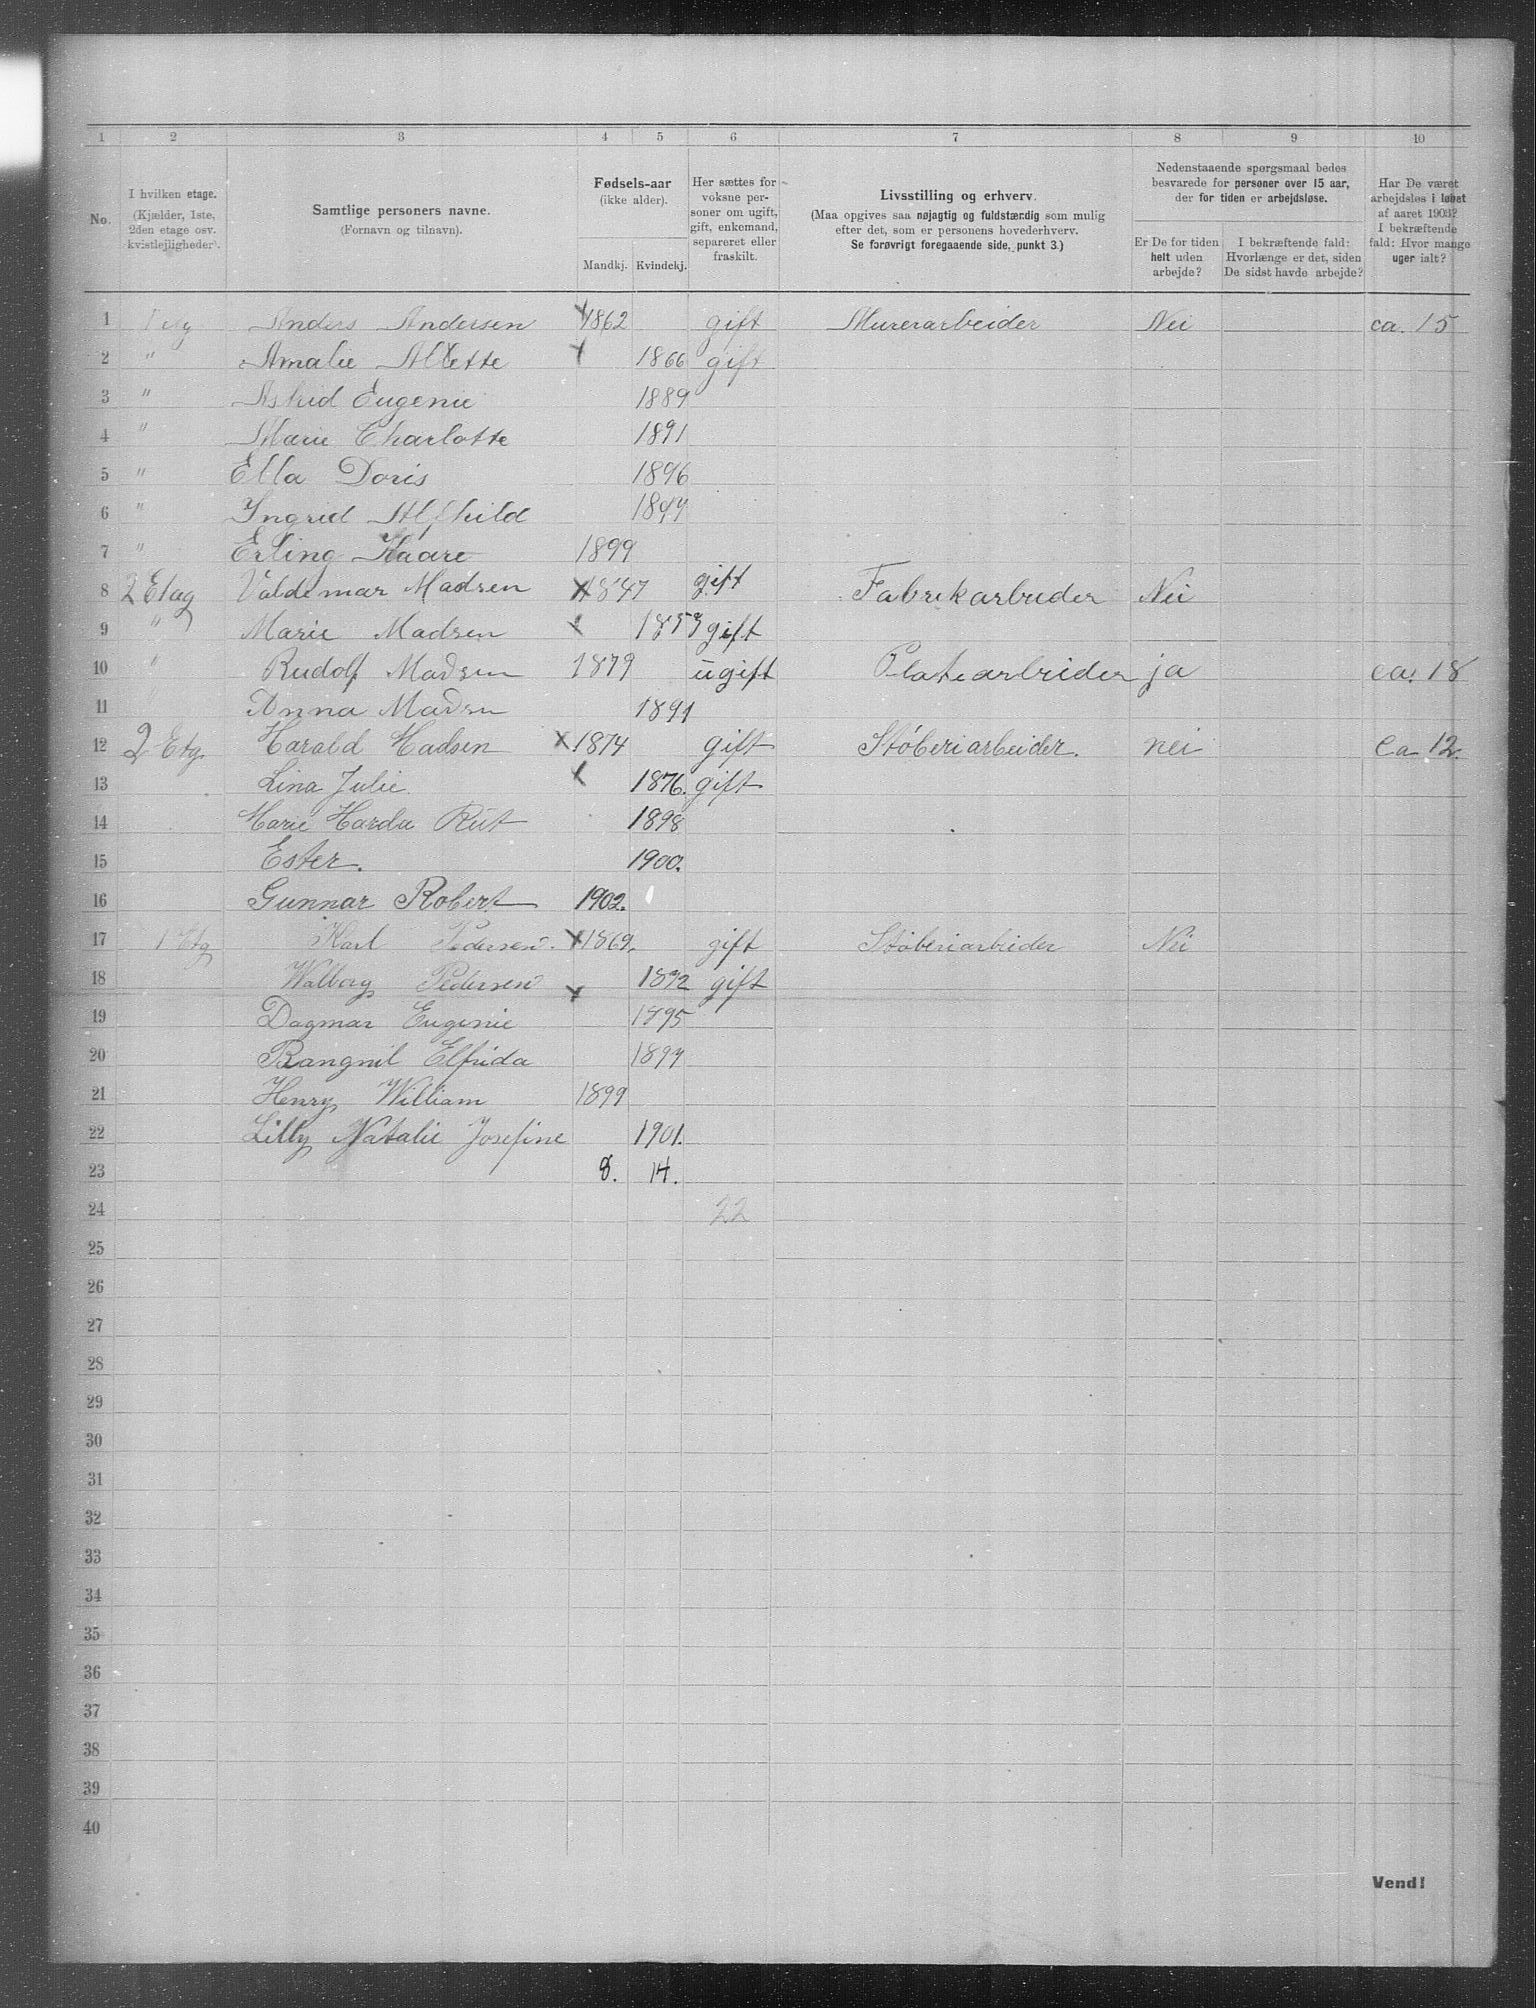 1 2 3 4 5 6 7 8 9 10
No.
I hvilken etage.
(Kjælder, 1ste,
2den etage osv.
kvistlejligheder).
Samtlige personers navne.
(Fornavn og tilnavn).
Fødsels-aar
(ikke alder).
Mandkj. Kvindekj.
Her sættes for
voksne per-
soner om ugift,
gift, enkemand,
separeret eller
fraskilt.
Livsstilling og erhverv.
(Maa opgives saa nøjagtig og fuldstændig som mulig
efter det, som er personens hovederhverv.
Se forøvrigt foregaaende side, punkt 3.)
Nedenstaaende spørgsmaal bedes
besvarede for personer over 15 aar,
der for tiden er arbejdsløse.
Er De for tiden
helt uden
arbejde?
I bekræftende fald:
Hvorlænge er det, siden
De sidst havde arbejde?
Har De været
arbejdsløs i løbet
af aaret 1903?
I bekræftende
fald: Hvor mange
uger ialt?
1 1 etg Anders Andersen x 1862 gift Murerarbeider Nei ca. 15
2 " Amalie Alette x 1866 gift
3 " Astrid Eugenie 1889
4 " Marie Charlotte 1891
5 " Ella Doris 1896
6 " Yngrid Alfhild
7 " Erling Kaare 1899
8 2 Etag Valdemar Madsen x 1847 gift Fabrikarbeider Nei
9 " Marie Madsen x 1853 gift
10 " Rudolf Madsen 1879 ugift Platearbeider ja ca. 18
11 Anna Madsen 1891
12 2 Etg. Harald Madsen x 1874 gift Støberiarbeider. nei ca 12.
13 Lina Julie x 1876. gift
14 Marie Harda Rut 1898
15 Ester. 1900.
16 Gunnar Robert 1902.
17 1 Etg Karl Pedersen. x 1869. gift Støberiarbeider Nei
18 Walborg Pedersen x 1872 gift
19 Dagmar Eugenie 1895
20 Rangnil Elfrida 1897
21 Henry William 1899
22 Lilly Natalie Josefine 1901.
23 8. 14.
24 22
25
26
27
28
29
30
31
32
33
34
35
36
37
38
39
40
Vend!